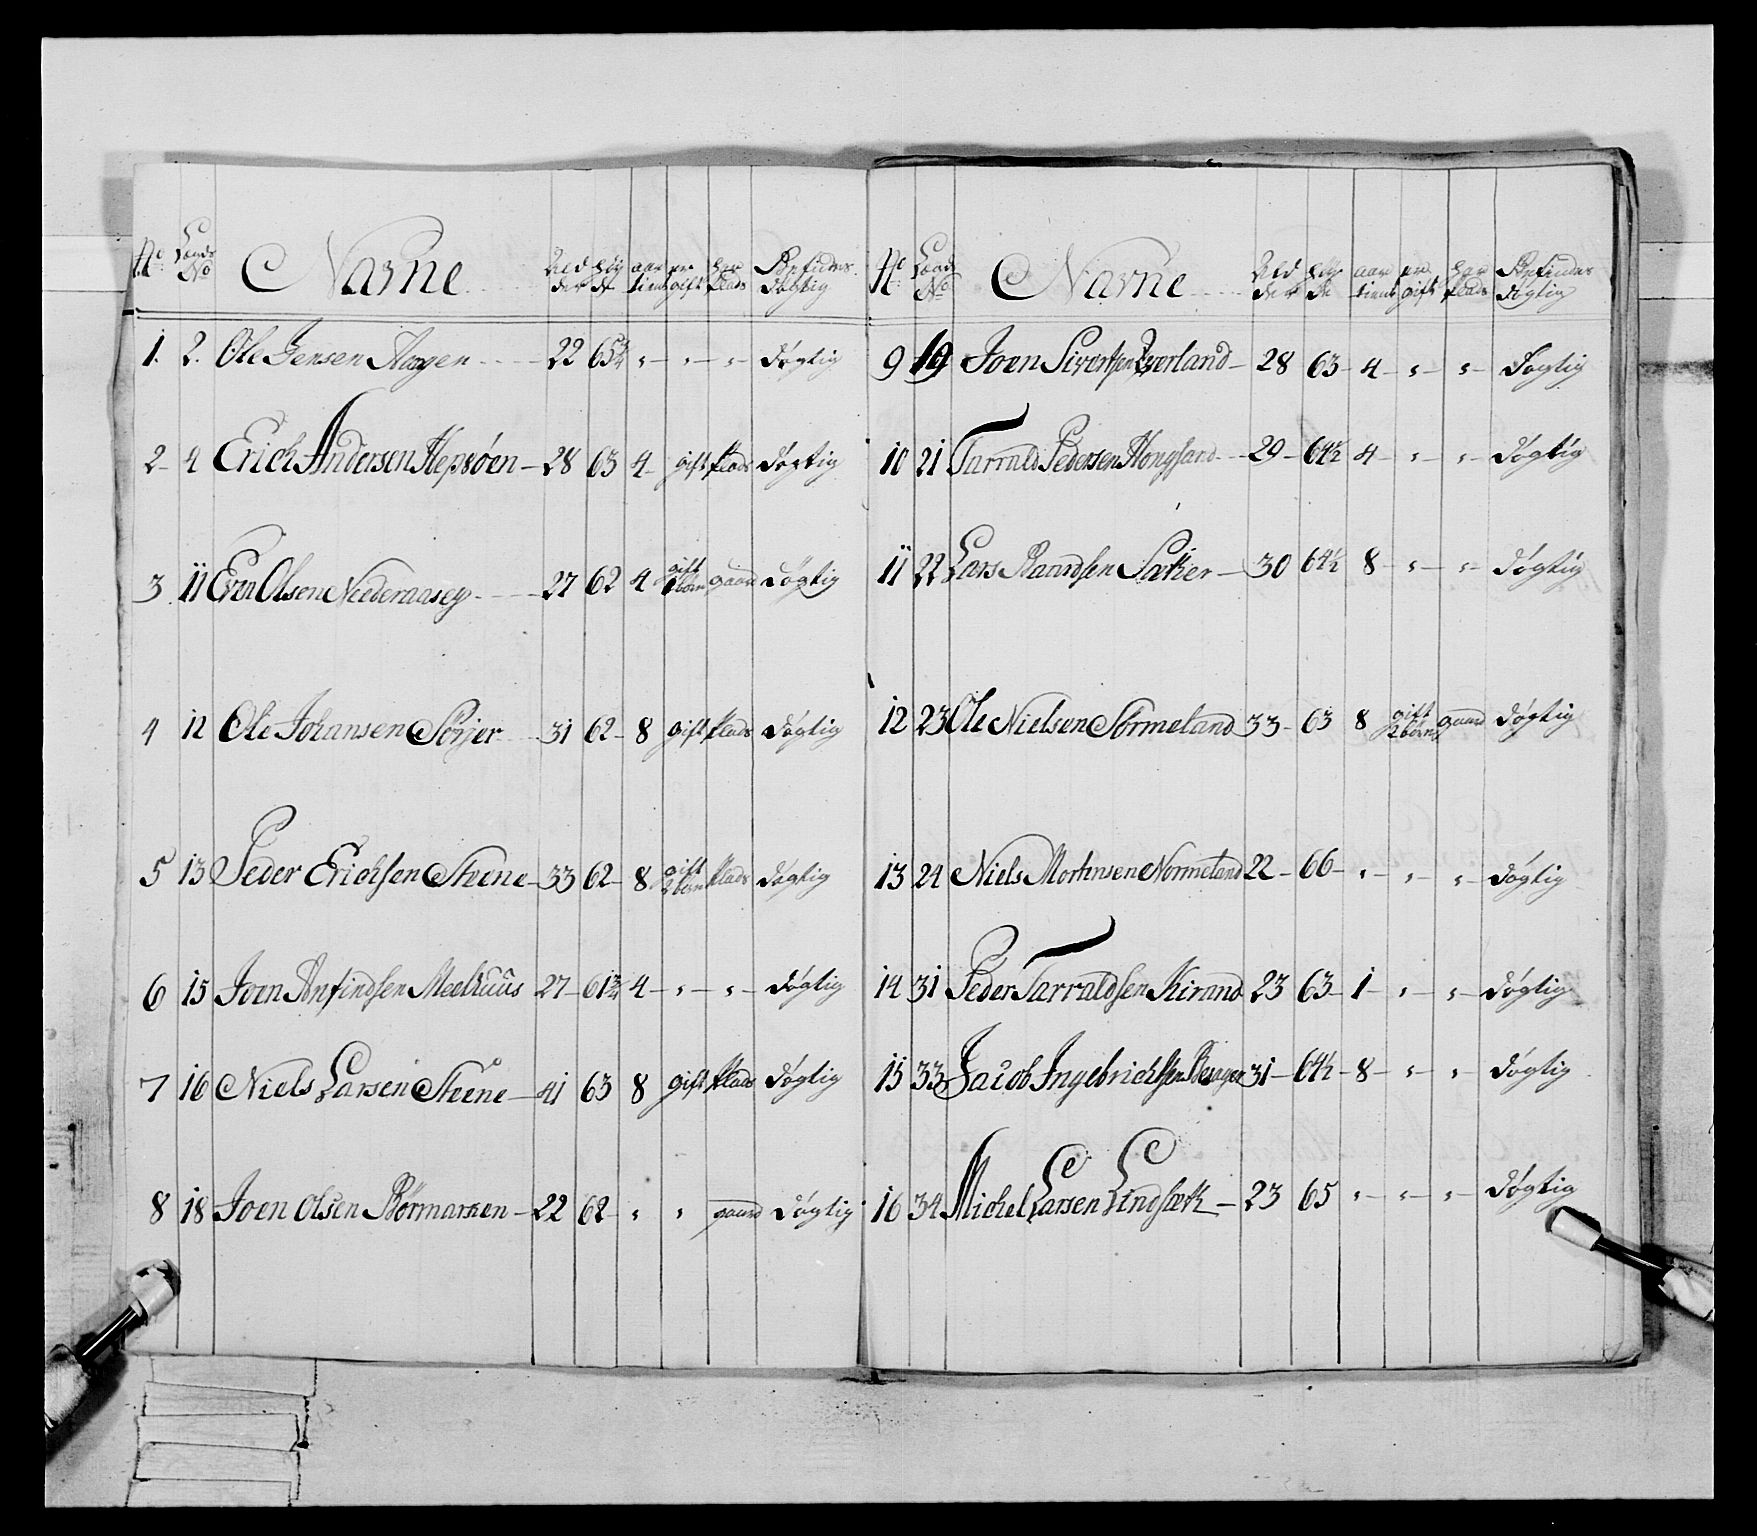 No Lægds No Navne Alder høyde aar tient er gift har plads Befindes døgtig
1. 2. Ole Jensen Aagen 22 65¾ " " " døgtig
2 4 Erich Andersen Hepsøen 28 63 4 gift plads døgtig
3 11 Even Olsen Nederaasey 27 62 4 gift 1 børn gaard døgtig
4 12 Ole Johansen Sörjer 31 62 8 gift plads døgtig
5 13 Peder Erichsen Steene 33 62 8 gift 2 børn plads døgtig
6 15 Joen Anfindsen Meelhuus 27 61¾ 4 " " døgtig
7 16 Niels Larsen Steene 41 63 8 gift plads døgtig
8 18 Joen Olsen Börmarken 22 62 " " gaard døgtig
No Lægds No Navne Alder høyde aar tient er gift har plads Befindes døgtig
9 19 Joen Sivertsen 28 63 4 " " døgtig
10 21 Tarrald Pedersen Hongsand 29 64½ 4 " " døgtig
11 22 Lars 30 64½ 8 " " døgtig
12 23 Ole Nielsen Sörmeland 33 63 8 gift 2 børn gaard døgtig
13 24 Niels Mortensen Normeland 22 66 " " " døgtig
14 31 Peder Tarraldsen Kirand 23 63 1 " " døgtig
15 33 Jacob Ingebrichtsen 31 64½ 8 " " døgtig
16 34 Michel Larsen Lindsæth 23 65 " " " døgtig